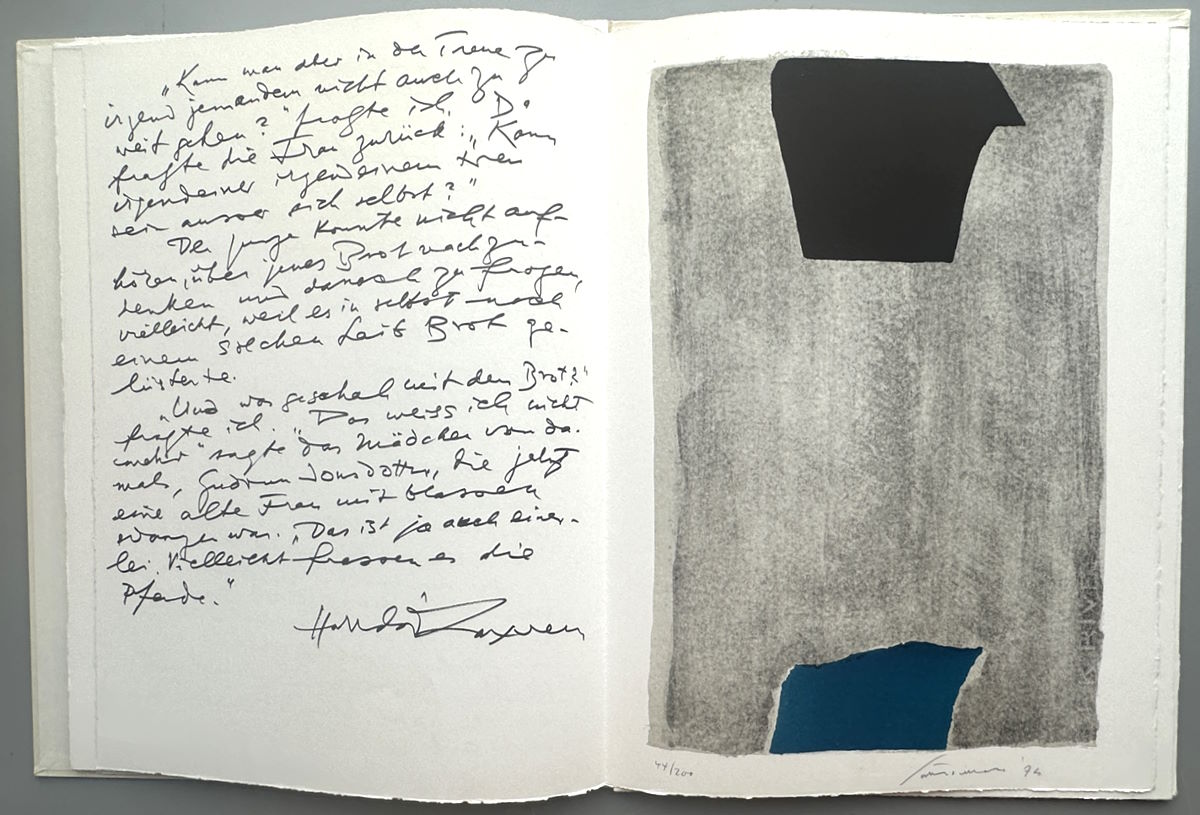 „Kann man aber in der Treue zu
irgend jemandem nicht auch zu
weit gehen?" fragte ich. Da
fragte die Frau zurück: „Kann
irgendeiner irgendeinem treu
sein ausser sich selbst?"
Der junge konnte nicht auf-
hören, über jenes Brot nachzu-
denken und danach zu fragen,
vielleicht, weil es in selbst nach
einem solchen Laib Brot ge-
lüstete.
„Und was geschah mit dem Brot?"
fragte ich. „Das weiss ich nicht
mehr" sagte das Mädchen von da-
mals, Gudrun Jonsdottir, die jetzt
eine alte Frau mit blassen
Wangen war. „Das ist ja auch einer-
lei. Vielleicht frassen es die
Pferde."
Halldór Laxness
44/200
'94